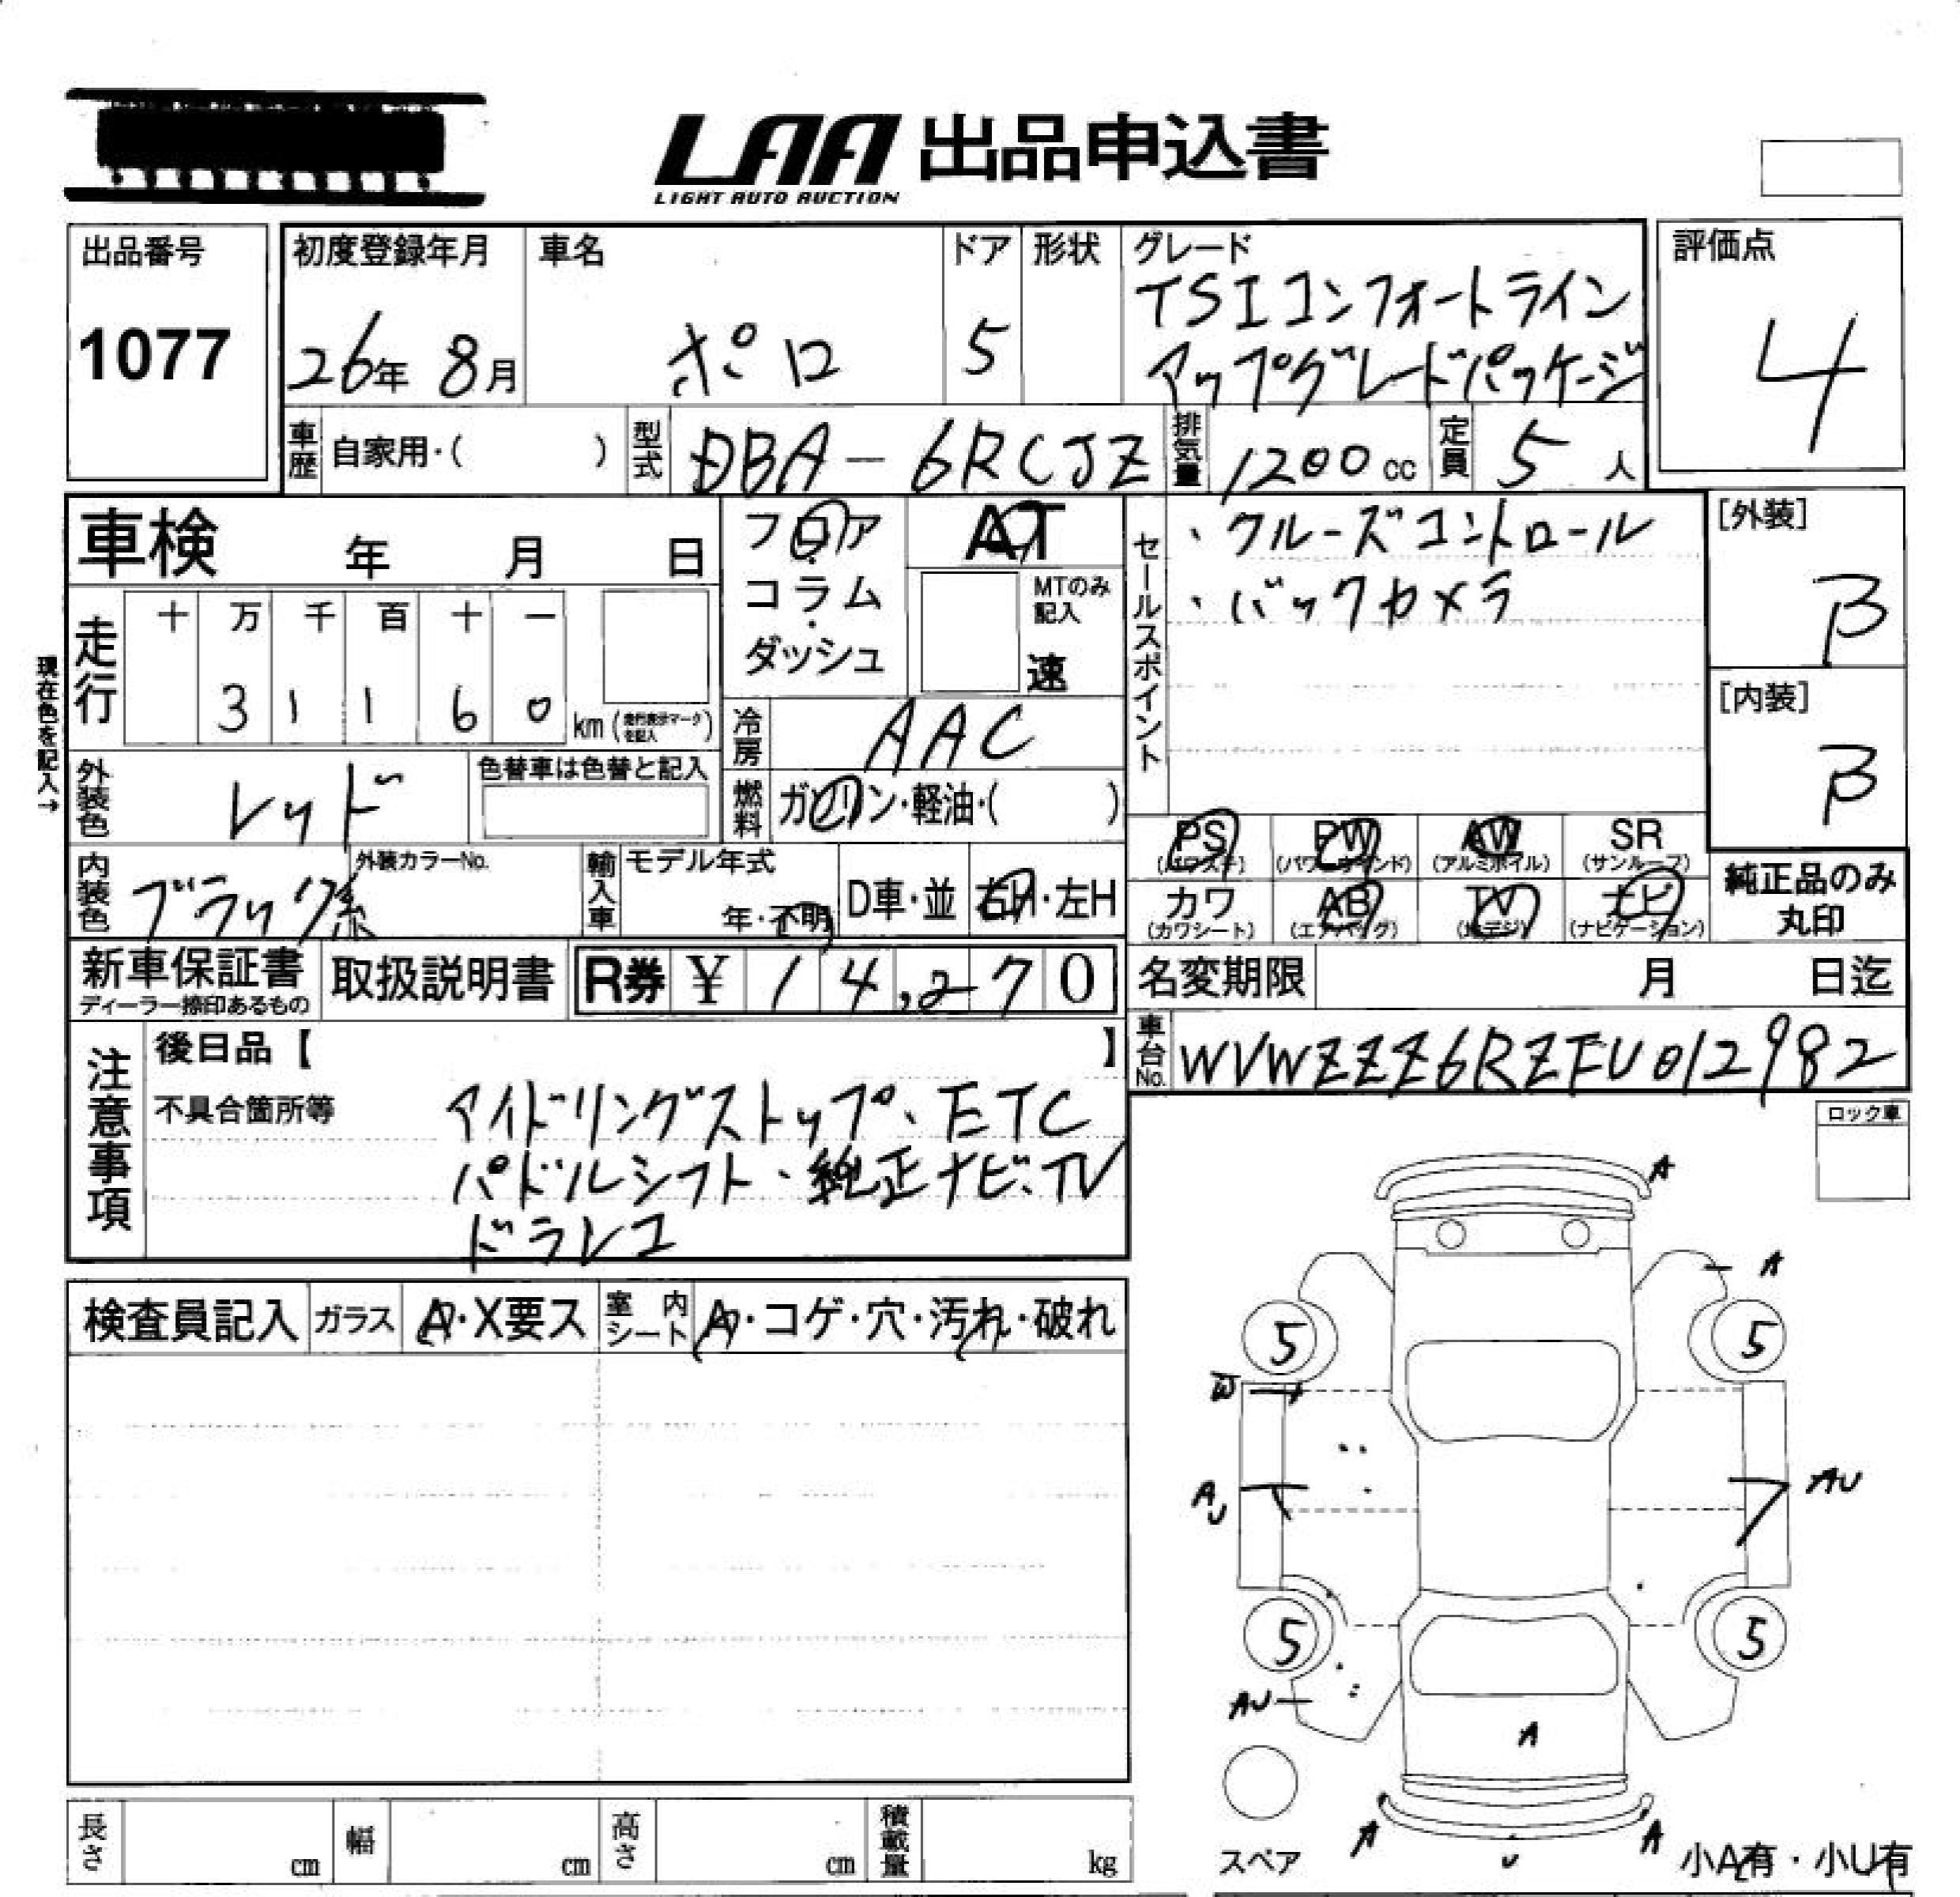 LAA 出品申込書
LIGHT AUTO AUCTION
出品番号
1077
初度登録年月
26年 8月
車名
ポロ
ドア
5
形状
グレード
TSIコンフォートライン
アップグレードパッケージ
評価点
4
車歴 自家用・( )
型式 DBA-6RCJZ
排気量 1200cc
定員 5人
車検 年 月 日
フロア
コラム
ダッシュ
AT
MTのみ
記入
速
セールスポイント
・クルーズコントロール
・バックカメラ
[外装]
B
[内装]
B
現在色を記入→
走行
十 万 千 百 十 一
3 1 1 6 0 km (走行表示マークを記入)
冷房 AAC
外装色 レッド
色替車は色替と記入
燃料 ガソリン・軽油・( )
PS (パワステ) PW (パワーウインド) AW (アルミホイル) SR (サンルーフ)
カワ (カワシート) AB (エアバッグ) TV (地デジ) ナビ (ナビゲーション)
純正品のみ
丸印
内装色 ブラック系
外装カラーNo.
輸入車 モデル年式
年・不明
D車・並
右H・左H
新車保証書
ディーラー捺印あるもの
取扱説明書
R券 ¥ 14,270
名変期限 月 日迄
車台No. WVWZZZ6RZFU012982
注意事項
後日品【 】
不具合箇所等
アイドリングストップ、ETC
パドルシフト、純正ナビ、TV
ドラレコ
ロック車
検査員記入 ガラス A・X要ス 室内シート A・コゲ・穴・汚れ・破れ
A
A
5 5
W
AU AU
5 5
AU
A
A A
U
スペア
小A有・小U有
長さ cm 幅 cm 高さ cm 積載量 kg